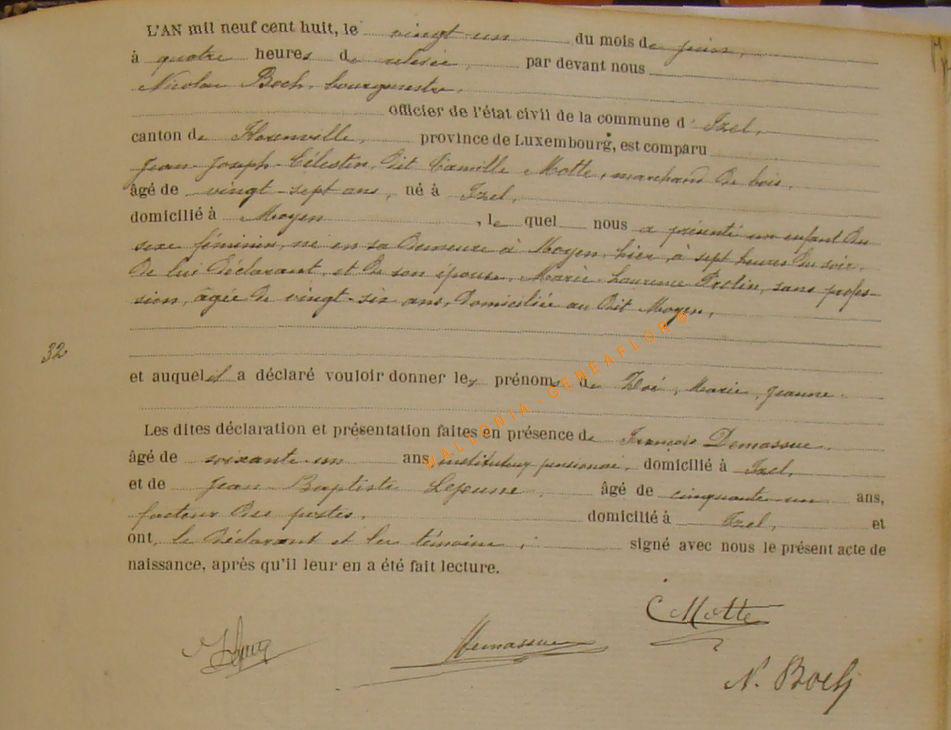 L'AN mil neuf cent huit, le vingt un du mois de juin,
à quatre heures de relevée, par devant nous
Nicolas Boch, bourgmestre,
officier de l'état civil de la commune d'Izel,
canton de Florenville, province de Luxembourg, est comparu
Jean Joseph Célestin, dit Camille Motte, marchand de bois,
âgé de vingt-sept ans, né à Izel,
domicilié à Moyen, le quel nous a présenté un enfant du
sexe féminin, né en sa demeure à Moyen, hier, à sept heures du soir,
de lui déclarant, et de son épouse, Marie-Laurence, sans profes-
sion, âgée de vingt-six ans, domiciliée au dit Moyen,
32
et auquel il a déclaré vouloir donner les prénoms de Zoé, Marie, Jeanne.
WALLONIA-GENEAFLOR®
Les dites déclaration et présentation faites en présence de François Demassue
âgé de soixante-un ans instituteur pensionné, domicilié à Izel,
et de Jean Baptiste Lejeune, âgé de cinquante un ans,
facteur des postes, domicilié à Izel, et
ont, le déclarant et les témoins, signé avec nous le présent acte de
naissance, après qu'il leur en a été fait lecture.
C Motte
Demassue
N. Boch